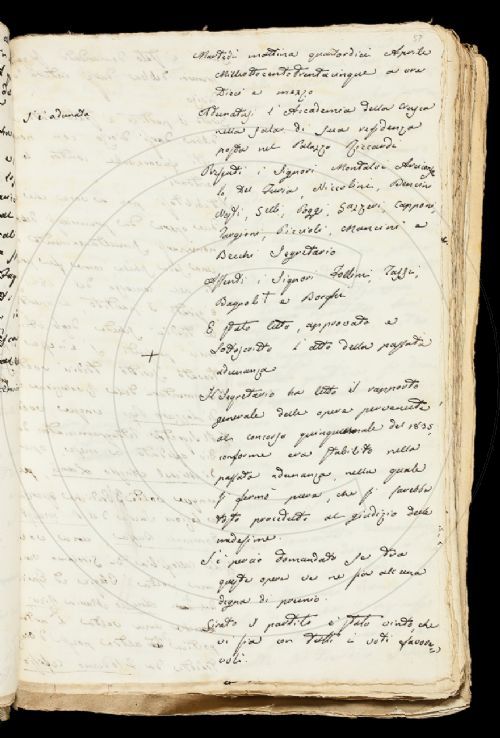 57
Martedì mattina quattordici Aprile
Milleottocentotrentacinque a ore
Dieci e mezzo
S'è adunata
Adunatasi l'Accademia della Crusca
nella Sala di Sua residenza
posta nel Palazzo Riccardi
Presenti i Signori Montalvi Arcicon
lo, del Furia, Niccolini, Bencini
Nesti, Gelli, Poggi, Gazzeri, Capponi,
Targioni, Piccioli, Mancini e
Becchi Segretario
Assenti i Signori Follini, Tassi,
Bagnoli e Borghi
E stato letto, approvato e
sottoscritto l'atto della passata
adunanza
Il Segretario ha letto il rapporto
generale delle opere pervenute
al concorso quinquennale del 1835,
conforme era stabilito nella
passata adunanza, nella quale
si fermò pure, che si sarebbe
tosto proceduto al giudizio delle
medesime.
S'è perciò domandato se tra
queste opere ve ne sia alcuna
degna di premio.
Girato il partito è stato vinto, che
vi sia con tutti i voti favore=
voli.